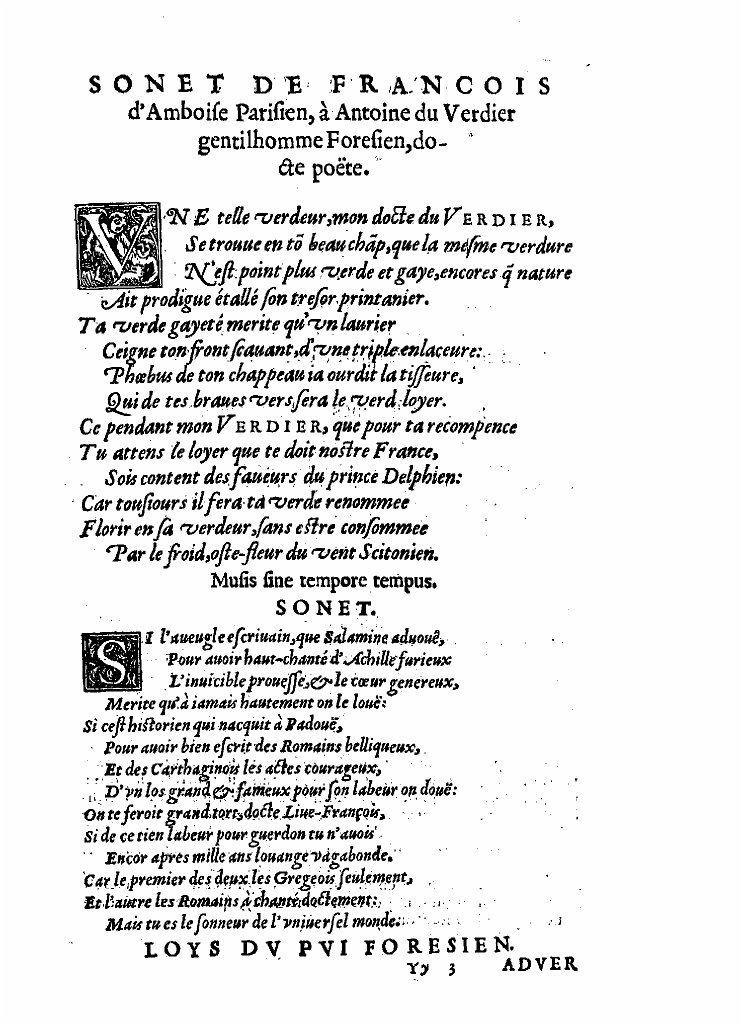 SONET DE FRANCOIS
d'Amboiſe Pariſien, à Antoine du Verdier
gentilhomme Foreſien, do-
cte poëte.
VNE telle verdeur, mon docte du VERDIER,
Se trouue en tõ beau chãp, que la meſme verdure
N'eſt point plus verde et gaye, encores q̃ nature
Ait prodigue étallé ſon treſor printanier.
Ta verde gayeté merite qu'vn laurier
Ceigne ton front ſcauant, d'vne triple enlaceure:
Phœbus de ton chappeau ia ourdit la tiſſeure,
Qui de tes braues vers, ſera le verd loyer.
Ce pendant mon VERDIER, que pour ta recompence
Tu attens le loyer que te doit noſtre France,
Sois content des faueurs du prince Delphien:
Car touſiours il fera ta verde renommee
Florir en ſa verdeur, ſans eſtre conſommee
Par le froid, oſte-fleur du vent Scitonien.
Muſis ſine tempore tempus.
SONET.
SI l'aueugle eſcriuain, que Salamine aduouë,
Pour auoir haut-chanté d'Achille furieux
L'inuicible proueſſe, & le cœur genereux,
Merite qu'à iamais hautement on le louë:
Si ceſt hiſtorien qui nacquit à Padouë,
Pour auoir bien eſcrit des Romains belliqueux,
Et des Carthaginois les actes courageux,
D'vn los grand & fameux pour ſon labeur on douë:
On te feroit grand tort, docte Liue-François,
Si de ce tien labeur pour guerdon tu n'auois
Encor apres mille ans louange vagabonde.
Car le premier des deux les Gregeois ſeulement,
Et l'autre les Romains à chanté doctement:
Mais tu es le ſonneur de l'vniuerſel monde.
LOYS DV PVI FORESIEN.
Yy 3 ADVER